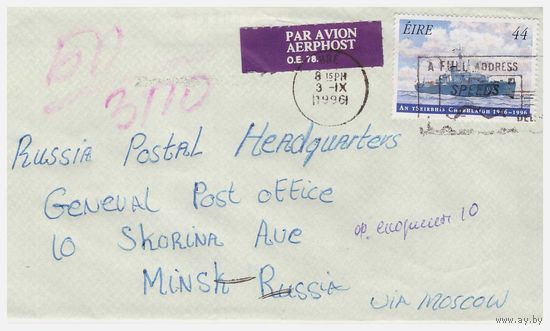 PAR AVION
AERPHOST
O.E. 78.
ÉIRE 44
8 15 PM
3 -IX
1996
A FULL ADDRESS
SPEEDS
AN TSEIRBHÍS CHABHLAIGH 1946-1996
3170
RUSSIA POSTAL HEADQUARTERS
GENEVAL POST OFFICE
10 SKORINA AVE
ф. скорины 10
MINSK RUSSIA
VIA MOSCOW
www.ay.by